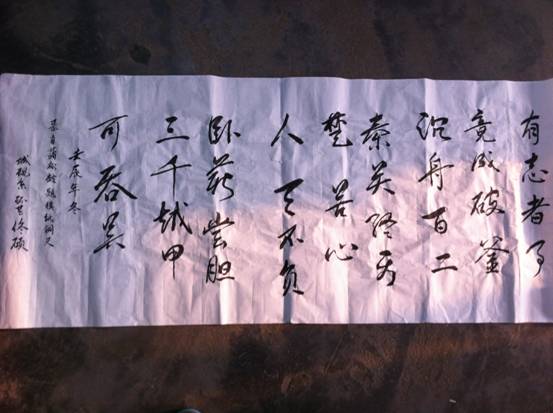 有志者事
竟成破釜
沉舟百二
秦关终属
楚苦心
人天不负
卧薪尝胆
三千越甲
可吞吴
壬辰年冬
录自蒲松龄铜尺